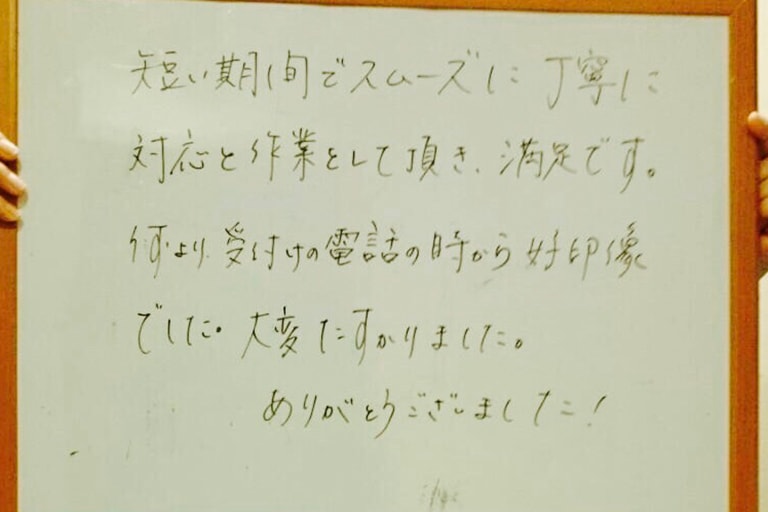 短い期間でスムーズに丁寧に
対応と作業をして頂き、満足です。
何より、受付けの電話の時から好印象
でした。大変たすかりました。
ありがとうございました!